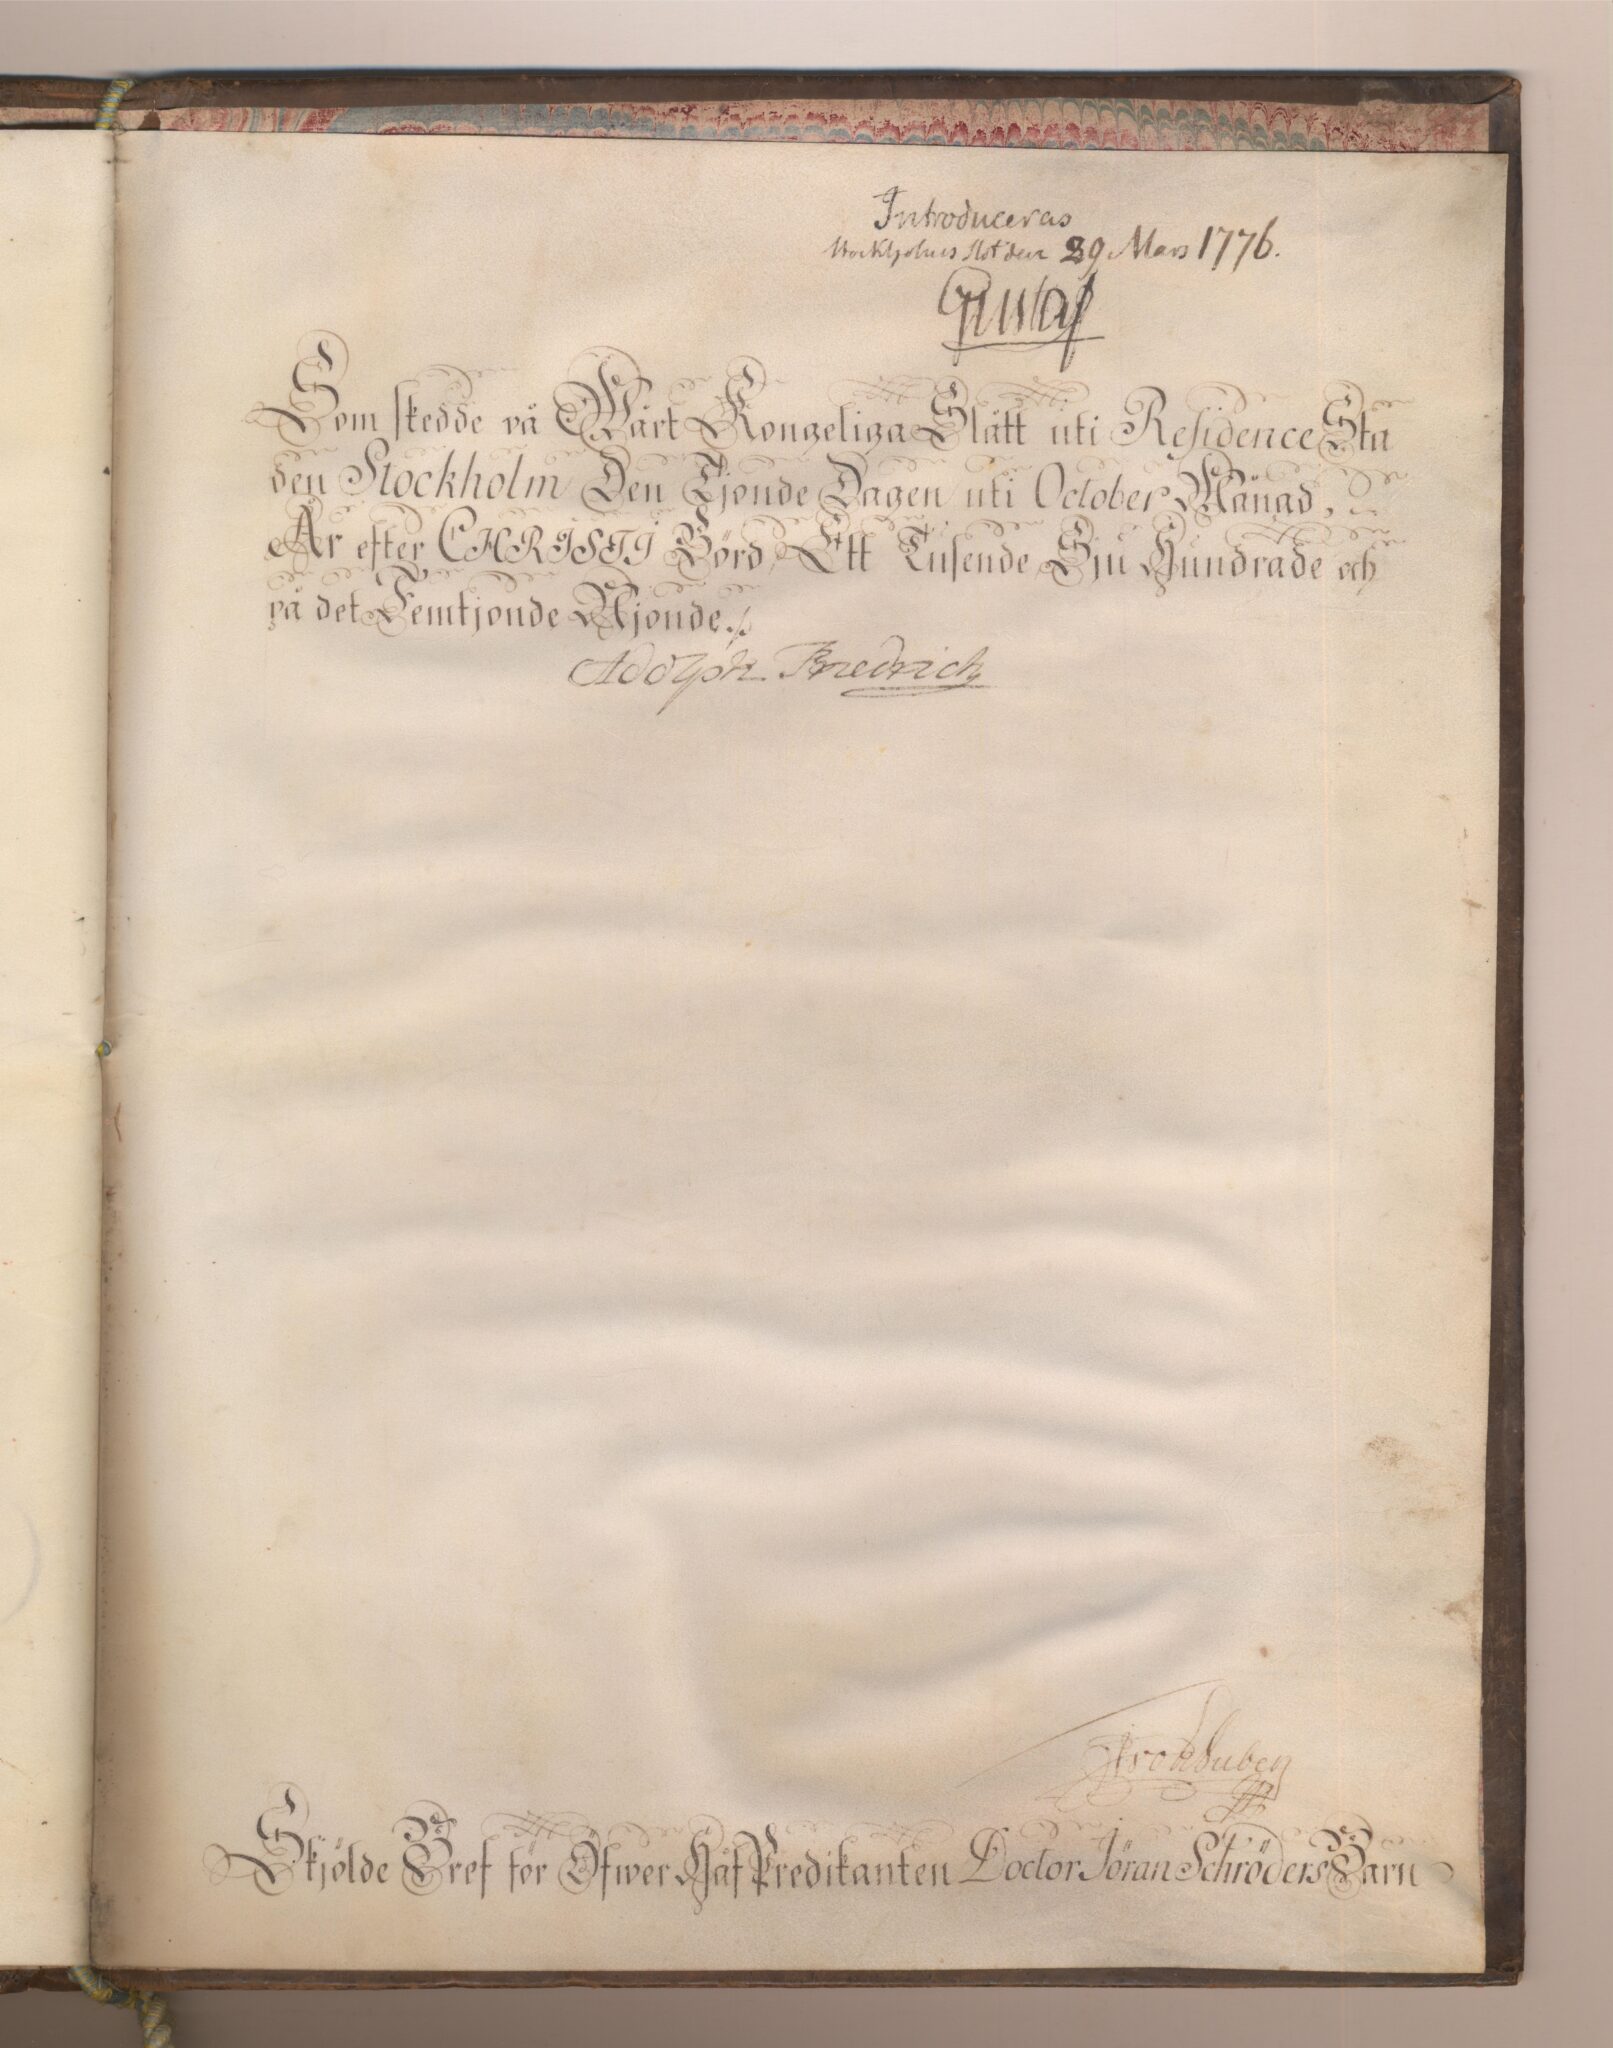 Introduceras
Stockholms Slott den 29 Mars 1776.
Gustaf
Som skedde på Wårt Kongeliga Slått uti Residence Sta
den Stockholm Den Tjonde Dagen uti October Månad,
År efter CHRISTI Börd, Ett Tusende Sju Hundrade och
på det Femtjonde Njonde./.
Adolph Friedrich
Skjölde Bref för Öfwer Håf Predikanten Doctor Jöran Schröders Barn